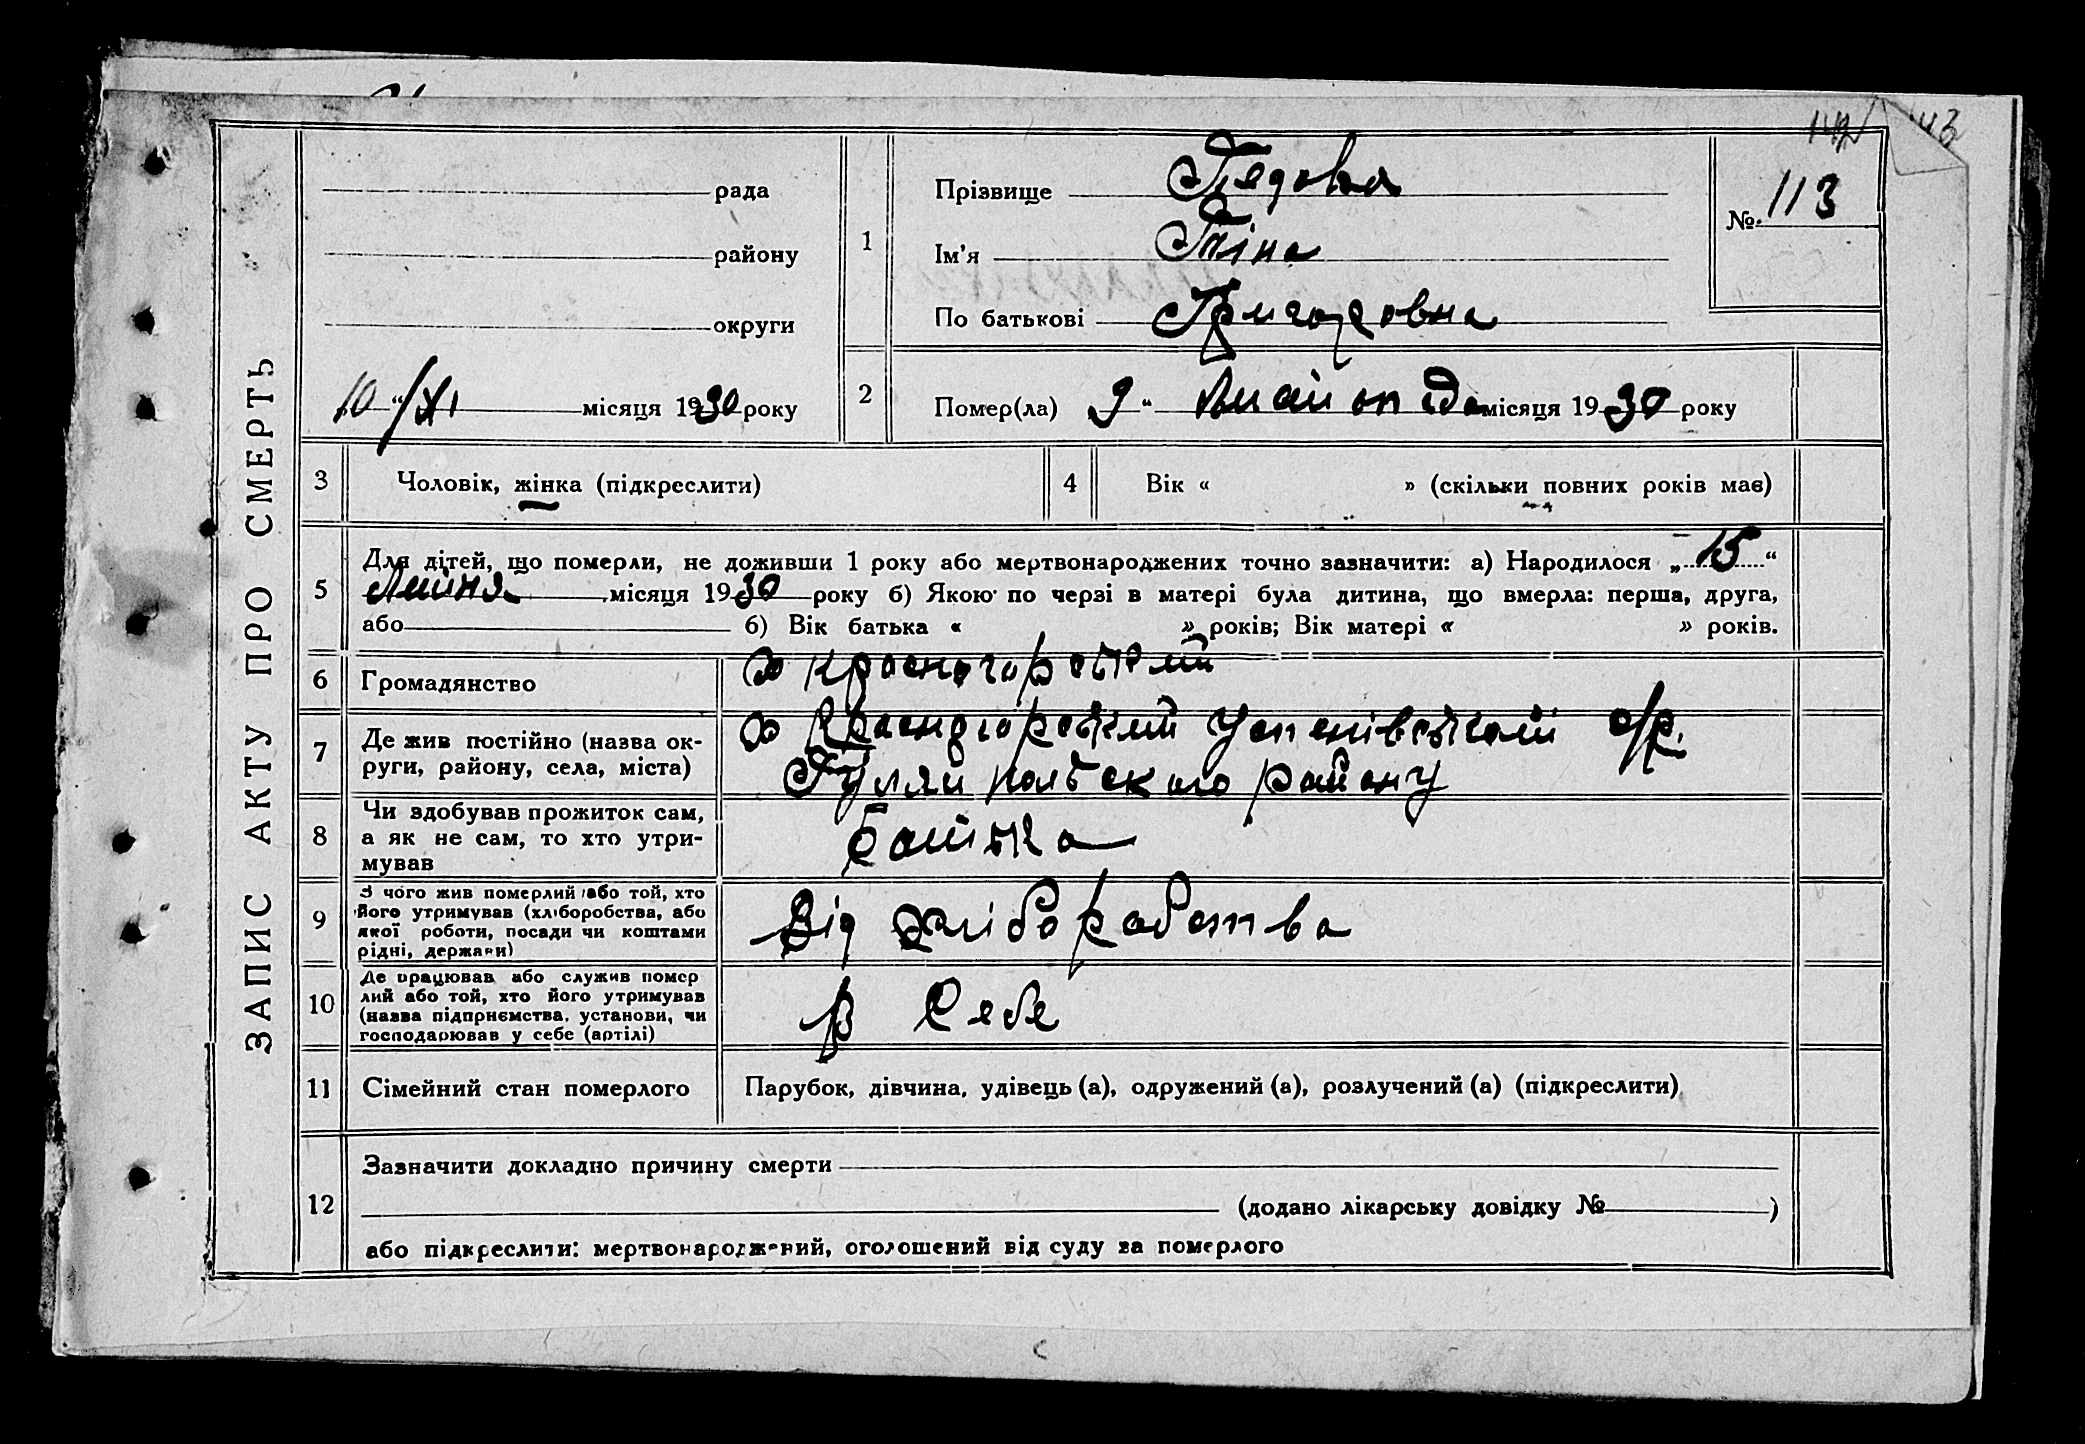 142 143
ЗАПИС АКТУ ПРО СМЕРТЬ
рада
району
округи
10 “/XI місяця 1930 року
1
Прізвище Гедова
Ім’я Тіна
По батькові Григоровна
№ 113
2
Помер(ла) 9 “ місяця 1930 року
3 Чоловік, жінка (підкреслити)
4 Вік « » (скільки повних років має)
5 Для дітей, що померли, не доживши 1 року або мертвонароджених точно зазначити: а) Народилося „ 15 “
Липня місяця 1930 року б) Якою по черзі в матері була дитина, що вмерла: перша, друга,
або б) Вік батька « » років; Вік матері « » років.
6 Громадянство
7 Де жив постійно (назва ок-
руги, району, села, міста)
Успенівської с/р.
Гуляй польского району
8 Чи здобував прожиток сам,
а як не сам, то хто утри-
мував
батька
9 З чого жив померлий або той, хто
його утримував (хліборобства, або
якої роботи, посади чи коштами
рідні, держави)
Від хлібороботва
10 Де працював або служив помер
лий або той, хто його утримував
(назва підприємства, установи, чи
господарював у себе (артілі)
в себе
11 Сімейний стан померлого
Парубок, дівчина, удівець (а), одружений (а), розлучений (а) (підкреслити)
12 Зазначити докладно причину смерти
(додано лікарську довідку № )
або підкреслити: мертвонароджений, оголошений від суду за померлого